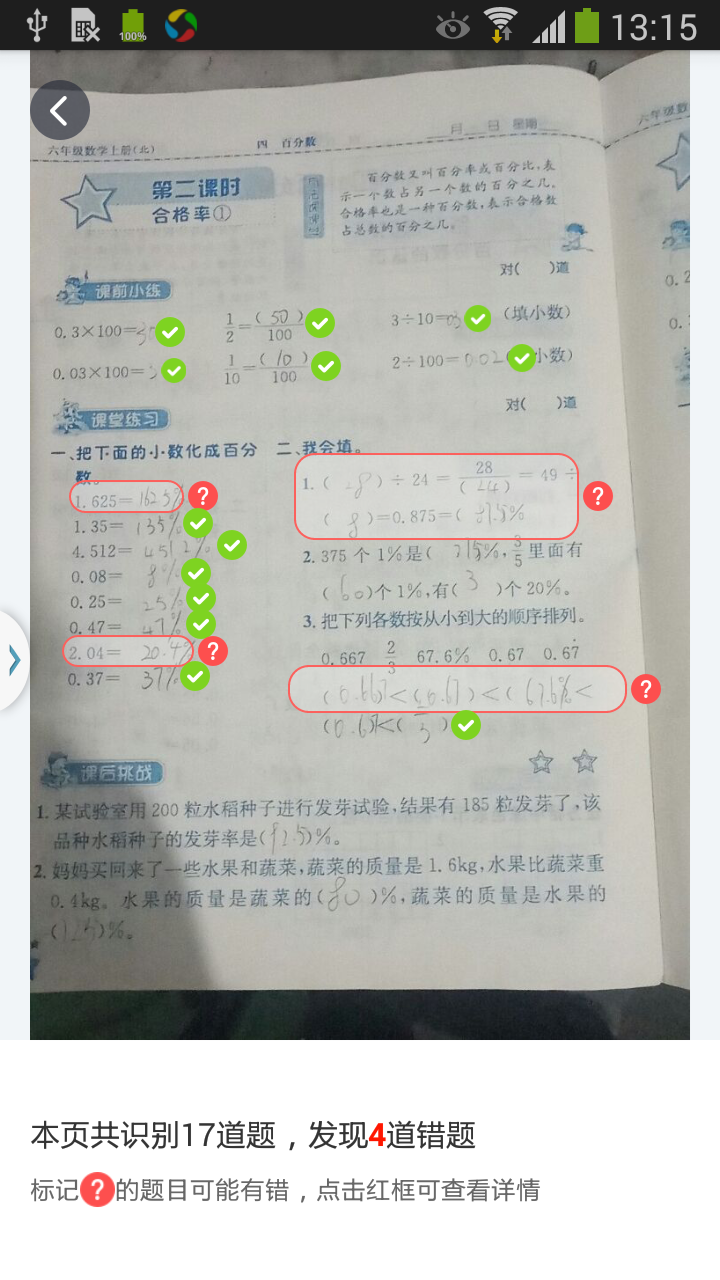 100%
13:15
六年级数学上册(北)
四 百分数
月 日 星期
六年级数
第二课时
合格率①
百分数又叫百分率或百分比,表
示一个数占另一个数的百分之几。
合格率也是一种百分数,表示合格数
占总数的百分之几。
对( )道
课前小练
0.3×100=
1/2=(50)/100
3÷10=0.3 (填小数)
0.03×100=
1/10=(10)/100
2÷100=0.02 小数)
对( )道
课堂练习
一、把下面的小数化成百分
数。
1.625=162.5%
1.35=135%
4.512=451.2%
0.08=8%
0.25=25%
0.47=47%
2.04=20.4%
0.37=37%
二、我会填。
1. ( )÷24=28/(24)=49÷
(8)=0.875=( 87.5%
2. 375个1%是( %,3/5里面有
(60)个1%,有(3)个20%。
3. 把下列各数按从小到大的顺序排列。
0.667 2/3 67.6% 0.67 0.67̇
(0.667)<(0.67)<(67.6%<
(0.67<(2/3)
课后挑战
1. 某试验室用200粒水稻种子进行发芽试验,结果有185粒发芽了,该
品种水稻种子的发芽率是(92.5)%。
2. 妈妈买回来了一些水果和蔬菜,蔬菜的质量是1.6kg,水果比蔬菜重
0.4kg。水果的质量是蔬菜的(80)%,蔬菜的质量是水果的
(125)%。
本页共识别17道题，发现4道错题
标记?的题目可能有错，点击红框可查看详情